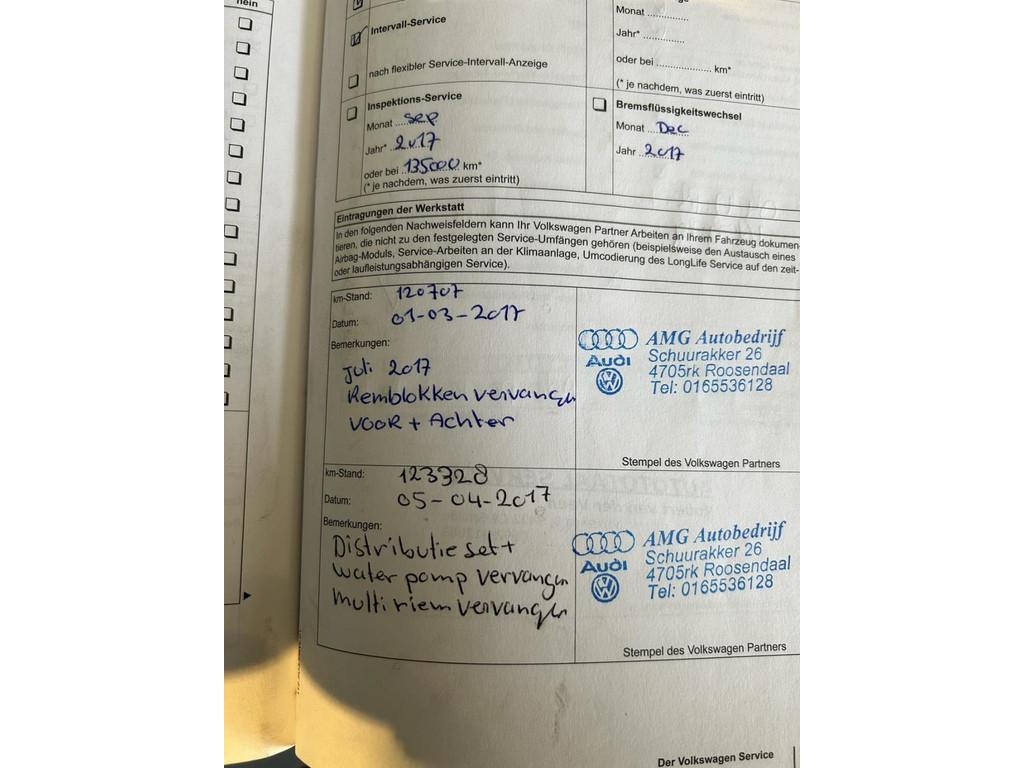 nein
Intervall-Service
nach flexibler Service-Intervall-Anzeige
Inspektions-Service
Monat ....Sep
Jahr* 2017
oder bei ..135000 km*
(* je nachdem, was zuerst eintritt)
Monat ..............
Jahr* ..............
oder bei ................... km*
(* je nachdem, was zuerst eintritt)
Bremsflüssigkeitswechsel
Monat ...Dec
Jahr ..2017
Eintragungen der Werkstatt
In den folgenden Nachweisfeldern kann Ihr Volkswagen Partner Arbeiten an Ihrem Fahrzeug dokumen-
tieren, die nicht zu den festgelegten Service-Umfängen gehören (beispielsweise den Austausch eines
Airbag-Moduls, Service-Arbeiten an der Klimaanlage, Umcodierung des LongLife Service auf den zeit-
oder laufleistungsabhängigen Service).
km-Stand: 120707
Datum: 01-03-2017
Bemerkungen:
Juli 2017
Remblokken vervangen
VOOR + Achter
AMG Autobedrijf
Schuurakker 26
4705rk Roosendaal
Tel: 0165536128
Audi
Stempel des Volkswagen Partners
km-Stand: 123328
Datum: 05-04-2017
Bemerkungen:
Distributie set +
water pomp vervangen
multi riem vervangen
AMG Autobedrijf
Schuurakker 26
4705rk Roosendaal
Tel: 0165536128
Audi
Stempel des Volkswagen Partners
Der Volkswagen Service